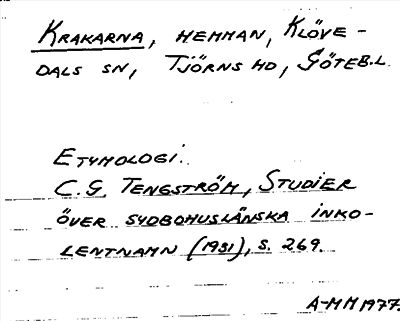 KRAKARNA, HEMMAN, KLÖVE-
DALS SN, TJÖRNS HD, GÖTEB.L.
ETYMOLOGI.
C.G. TENGSTRÖM, STUDIER
ÖVER SYDBOHUSLÄNSKA INKO-
LENTNAMN (1931), S. 269.
A-MM 1977.